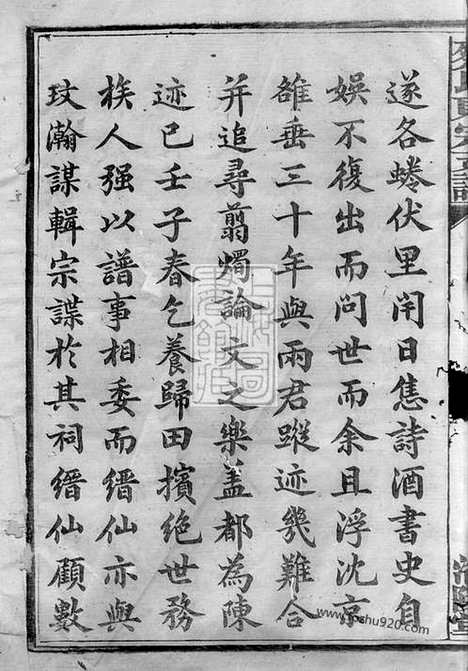 遂各蜷伏里閈日惟詩酒書史自
娛不復出而問世而余且浮沈京
雒垂三十年與兩君蹤迹幾難合
并追尋翦燭論文之樂蓋都為陳
迹已壬子春乞養歸田擯絕世務
族人强以譜事相委而縉仙亦與
玟瀚謀輯宗諜於其祠縉仙顧數
www.jiashu920.com